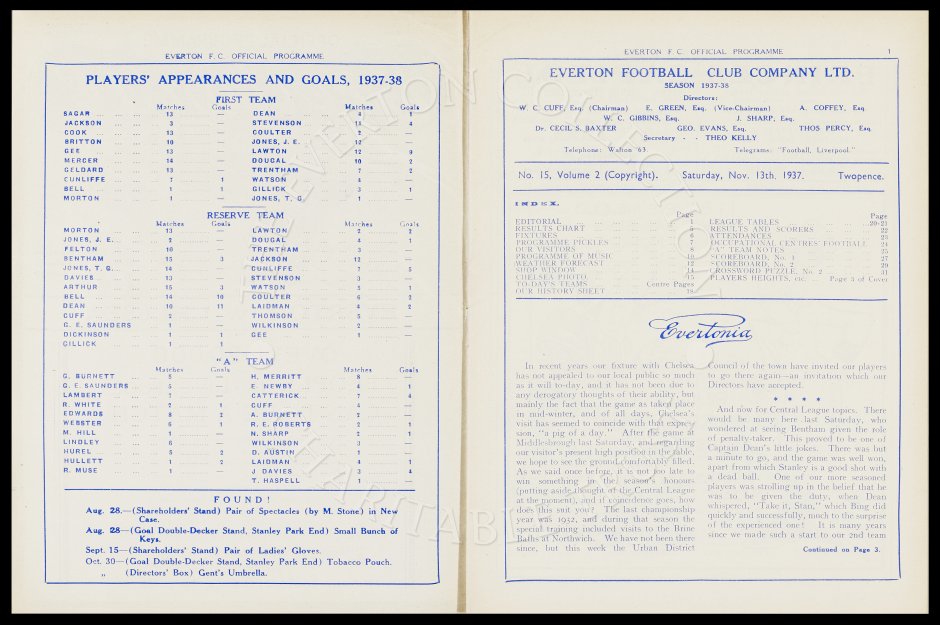 EVERTON F.C. OFFICIAL PROGRAMME
PLAYERS' APPEARANCES AND GOALS, 1937-38
FIRST TEAM
Matches Goals Matches Goals
SAGAR 13 — DEAN 4 1
JACKSON 3 — STEVENSON 11 4
COOK 13 — COULTER 2 —
BRITTON 10 — JONES, J. E. 12 —
GEE 13 — LAWTON 12 9
MERCER 14 — DOUGAL 10 2
GELDARD 13 — TRENTHAM 7 2
CUNLIFFE 7 1 WATSON 4 —
BELL 1 1 GILLICK 3 1
MORTON 1 — JONES, T. G. 1 —
RESERVE TEAM
Matches Goals Matches Goals
MORTON 13 — LAWTON 2 2
JONES, J. E. 2 — DOUGAL 4 1
FELTON 10 — TRENTHAM 3 —
BENTHAM 15 3 JACKSON 12 —
JONES, T. G. 14 — CUNLIFFE 7 5
DAVIES 13 — STEVENSON 3 —
ARTHUR 15 3 WATSON 5 1
BELL 14 10 COULTER 6 2
DEAN 10 11 LAIDMAN 4 2
CUFF 2 — THOMSON 5 —
G. E. SAUNDERS 1 — WILKINSON 2 —
DICKINSON 1 1 GEE 1 —
GILLICK 1 1
"A" TEAM
Matches Goals Matches Goals
G. BURNETT 5 — H. MERRITT 8 —
G. E. SAUNDERS 5 — E. NEWBY 4 1
LAMBERT 7 — CATTERICK 7 4
R. WHITE 2 1 CUFF 4 —
EDWARDS 8 2 A. BURNETT 2 —
WEBSTER 6 1 R. E. ROBERTS 2 1
M. HILL 1 — N. SHARP 2 1
LINDLEY 6 — WILKINSON 3 —
HUREL 5 2 D. AUSTIN 1 —
HULLETT 1 2 LAIDMAN 4 1
R. MUSE 1 — J DAVIES 3 4
T. HASPELL 1 —
FOUND!
Aug. 28.—(Shareholders' Stand) Pair of Spectacles (by M. Stone) in New
Case.
Aug. 28—(Goal Double-Decker Stand, Stanley Park End) Small Bunch of
Keys.
Sept. 15—(Shareholders' Stand) Pair of Ladies' Gloves.
Oct. 30—(Goal Double-Decker Stand, Stanley Park End) Tobacco Pouch.
„ (Directors' Box) Gent's Umbrella.
EVERTON F.C. OFFICIAL PROGRAMME 1
EVERTON FOOTBALL CLUB COMPANY LTD.
SEASON 1937-38
Directors:
W. C. CUFF, Esq. (Chairman) E. GREEN, Esq. (Vice-Chairman) A. COFFEY, Esq.
W. C. GIBBINS, Esq. J. SHARP, Esq.
Dr. CECIL S. BAXTER GEO. EVANS, Esq. THOS PERCY, Esq.
Secretary - - THEO KELLY
Telephone: Walton 63. Telegrams: "Football, Liverpool."
No. 15, Volume 2 (Copyright). Saturday, Nov. 13th. 1937. Twopence.
INDEX.
Page Page
EDITORIAL 1 LEAGUE TABLES 20-21
RESULTS CHART 5 RESULTS AND SCORERS 22
FIXTURES 6 ATTENDANCES 23
PROGRAMME PICKLES 7 OCCUPATIONAL CENTRES' FOOTBALL 24
OUR VISITORS 8 "A" TEAM NOTES 25
PROGRAMME OF MUSIC 10 SCOREBOARD, No. 1 27
WEATHER FORECAST 12 SCOREBOARD, No. 2 29
SHOP WINDOW 14 CROSSWORD PUZZLE, No. 2 31
CHELSEA PHOTO 15 PLAYERS HEIGHTS, etc. Page 3 of Cover
TO-DAY'S TEAMS Centre Pages
OUR HISTORY SHEET 18
Evertonia
In recent years our fixture with Chelsea
has not appealed to our local public so much
as it will to-day, and it has not been due to
any derogatory thoughts of their ability, but
mainly the fact that the game as taken place
in mid-winter, and of all days, Chelsea's
visit has seemed to coincide with that expres-
sion, "a pig of a day." After the game at
Middlesbrough last Saturday, and regarding
our visitor's present high position in the table,
we hope to see the ground comfortably filled.
As we said once before, it is not too late to
win something in the season's honours
(putting aside thought of the Central League
at the moment), and if coincidence goes, how
does this suit you? The last championship
year was 1932, and during that season the
special training included visits to the Brine
Baths at Northwich. We have not been there
since, but this week the Urban District
Council of the town have invited our players
to go there again—an invitation which our
Directors have accepted.
* * * *
And now for Central League topics. There
would be many here last Saturday, who
wondered at seeing Bentham given the role
of penalty-taker. This proved to be one of
Captain Dean's little jokes. There was but
a minute to go, and the game was well won,
apart from which Stanley is a good shot with
a dead ball. One of our more seasoned
players was strolling up in the belief that he
was to be given the duty, when Dean
whispered, "Take it, Stan," which Bing did
quickly and successfully, much to the surprise
of the experienced one! It is many years
since we made such a start to our 2nd team
Continued on Page 3.